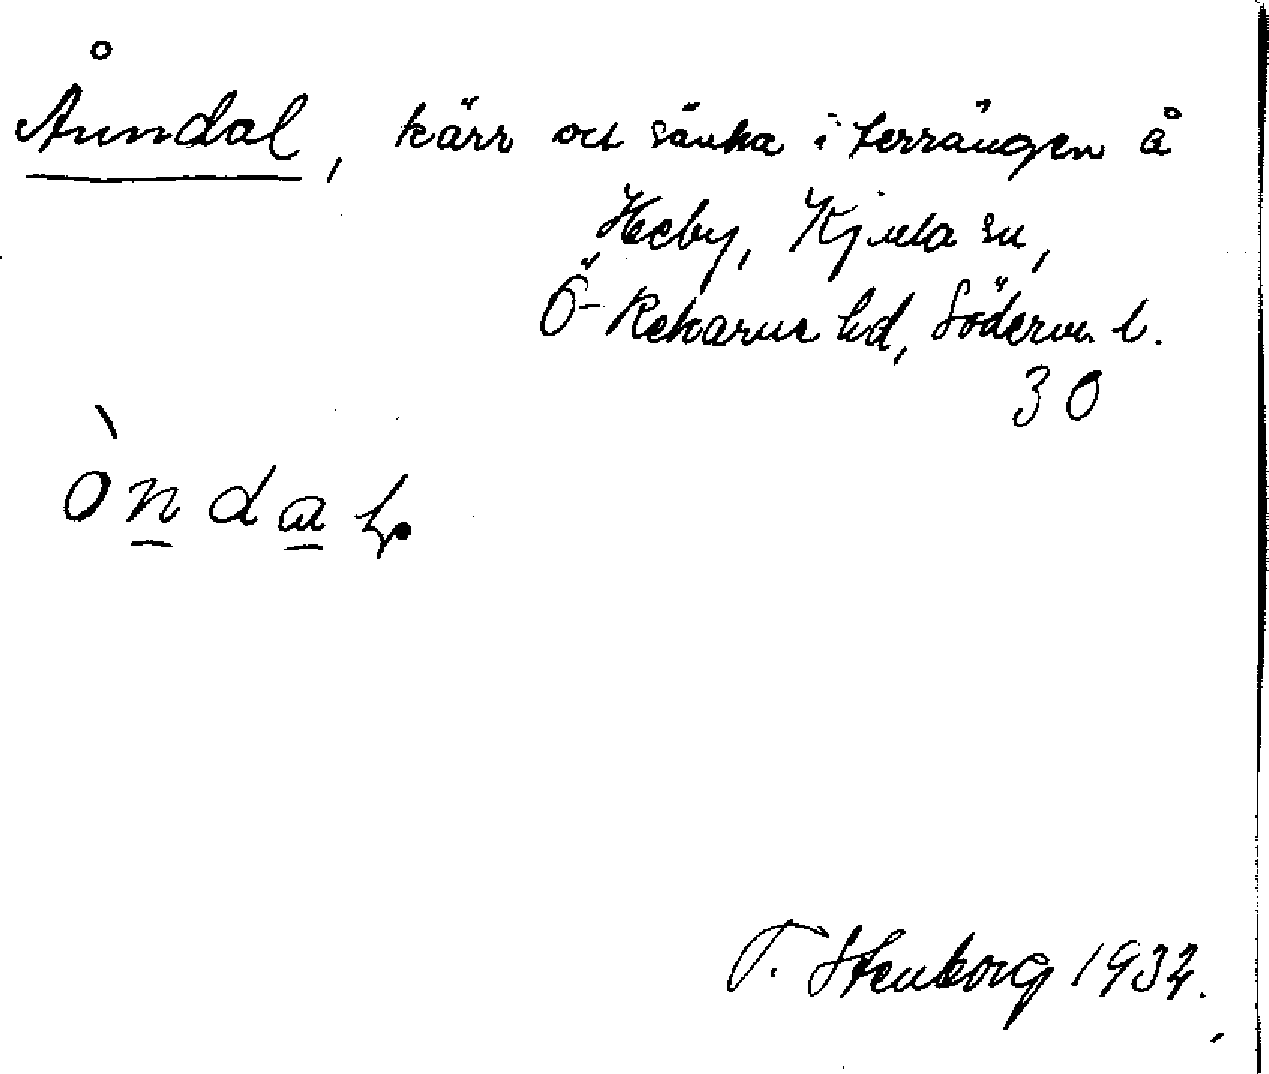 Ånndal, kärr och sänka i terrängen å
Heby, Kjula sn,
Ö-Rekarne hd, Söderm. l.
30
òndał
T. Stenborg 1932.